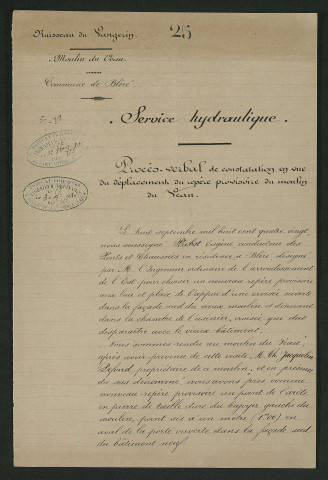 Ruisseau du Vangerin
25
Moulin du Véau
Commune de Bléré
Service hydraulique.
Procès-verbal de constatation en vue
du déplacement du repère provisoire du moulin
du Véau.
Le huit septembre mil huit cent quatre vingt,
nous soussigné Pichot Eugène conducteur des
Ponts et Chaussées en résidence à Bléré, désigné
par M. l'Ingénieur ordinaire de l'arrondissement
de l'Est pour choisir un nouveau repère provisoire
aux lieu et place de l'appui d'une croisée ouverte
dans la façade sud du vieux moulin et donnant
dans la chambre de l'usinier, croisée qui doit
disparaître avec le vieux bâtiment.
Nous sommes rendu au moulin du Véau,
après avoir prévenu de cette visite M. Ch. Jacquelin
propriétaire de ce moulin, et en présence
du sus dénommé, nous avons pris comme
nouveau repère provisoire un point de l'arête
en pierre de taille dure du bajoyer gauche du
moulin, point sis à un mètre (1.00) en
aval de la porte ouverte dans la façade sud
du bâtiment neuf.